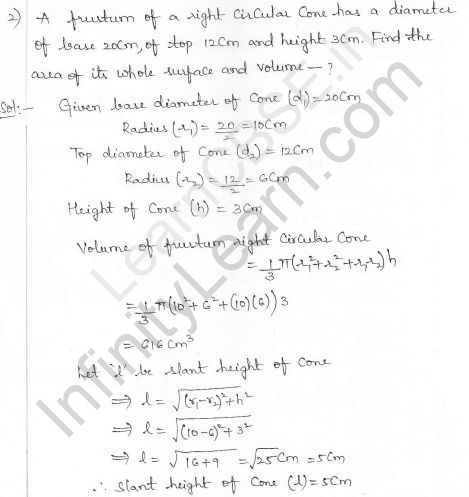 2) A frustum of a right Circular Cone has a diameter
of base 20cm, of top 12cm and height 3cm. Find the
area of its whole surface and volume — ?
Sol:- Given base diameter of Cone (d₁) = 20cm
Radius (r₁) = 20/2 = 10cm
Top diameter of Cone (d₂) = 12cm
Radius (r₂) = 12/2 = 6cm
Height of Cone (h) = 3cm
Volume of frustum right Circular Cone
= 1/3 π(r₁² + r₂² + r₁r₂)h
= 1/3 π(10² + 6² + (10)(6))3
= 616cm³
Let 'l' be slant height of Cone
⇒ l = √((r₁-r₂)² + h²)
⇒ l = √((10-6)² + 3²)
⇒ l = √(16+9) = √25cm = 5cm
∴ Slant height of Cone (l) = 5cm
LearnCBSE.in
InfinityLearn.com